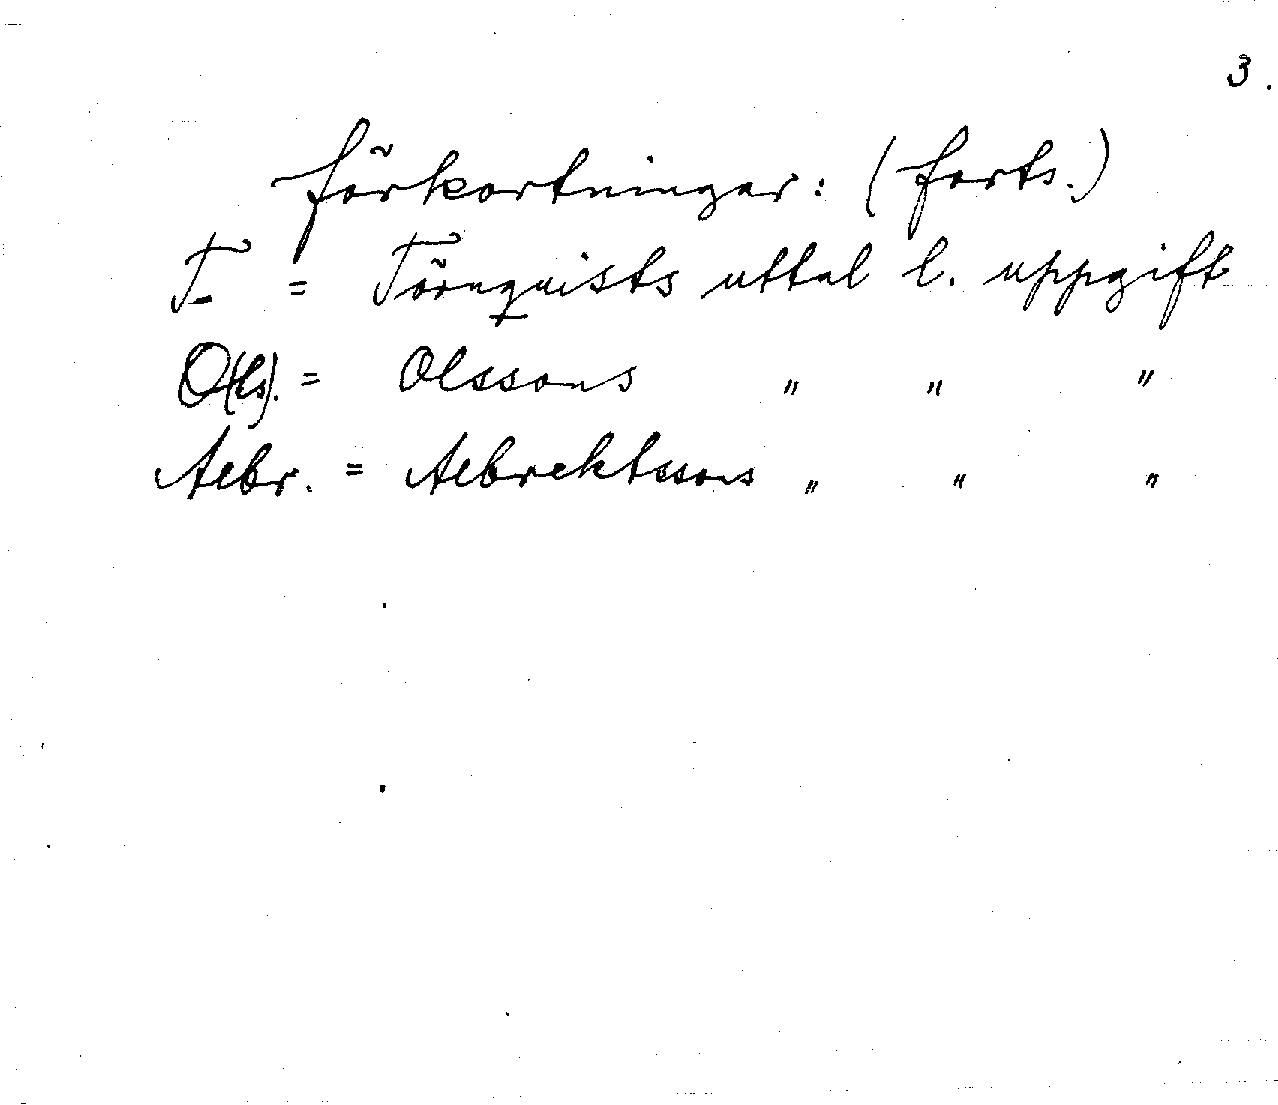 3.
Förkortningar: (forts.)
T. = Törnquists uttal l. uppgift
O(ls). = Olssons " " "
Albr. = Albrektssons " " "